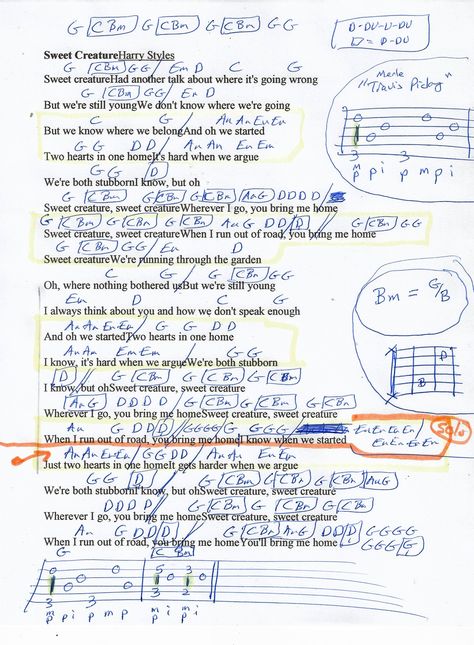 G [C Bm] G [C Bm] G [C Bm] G G
D-DU-U-DU
▱ = D-DU
Sweet CreatureHarry Styles
G [C Bm] G G / Em D C G
Sweet creatureHad another talk about where it's going wrong
G [C Bm] G G / Em D
But we're still youngWe don't know where we're going
C G / Am Am Em Em
But we know where we belongAnd oh we started
G G D D / Am Am Em Em
Two hearts in one homeIt's hard when we argue
G G [D]
We're both stubbornI know, but oh
G [C Bm] G [C Bm] G [C Bm] [Am G] D D D D
Sweet creature, sweet creatureWherever I go, you bring me home
G [C Bm] G [C Bm] G [C Bm] Am G D D [D] G [C Bm] G G
Sweet creature, sweet creatureWhen I run out of road, you bring me home
G [C Bm] G G / Em D
Sweet creatureWe're running through the garden
C G / G [C Bm] G G
Oh, where nothing bothered usBut we're still young
Em D C G
I always think about you and how we don't speak enough
Am Am Em Em / G G D D
And oh we startedTwo hearts in one home
Am Am Em Em G G
I know, it's hard when we argueWe're both stubborn
[D] / G [C Bm] G [C Bm]
I know, but ohSweet creature, sweet creature
[Am G] D D D D / G [C Bm] G [C Bm]
Wherever I go, you bring me homeSweet creature, sweet creature
Am G D D [D] // G G G G / G G G G Em Em Em Em
When I run out of road, you bring me homeI know when we started
Em Em Em Em
Solo
Am Am Em Em / G G D D / Am Am Em Em
Just two hearts in one homeIt gets harder when we argue
G G [D] G [C Bm] G [C Bm] G [C Bm] [Am G]
We're both stubbornI know, but ohSweet creature, sweet creature
D D D D G [C Bm] G [C Bm] G [C Bm]
Wherever I go, you bring me homeSweet creature, sweet creature
Am G D D [D] G [C Bm] [Am G] D D D [D] G G G G
When I run out of road, you bring me homeYou'll bring me home
G G G [G]
Merle
"Travis Picking"
3 3
m p p i p m p i
Bm = G/B
D
B
G [C Bm]
3 3
5 3
3 2
m p p i p m p
m p i m p i